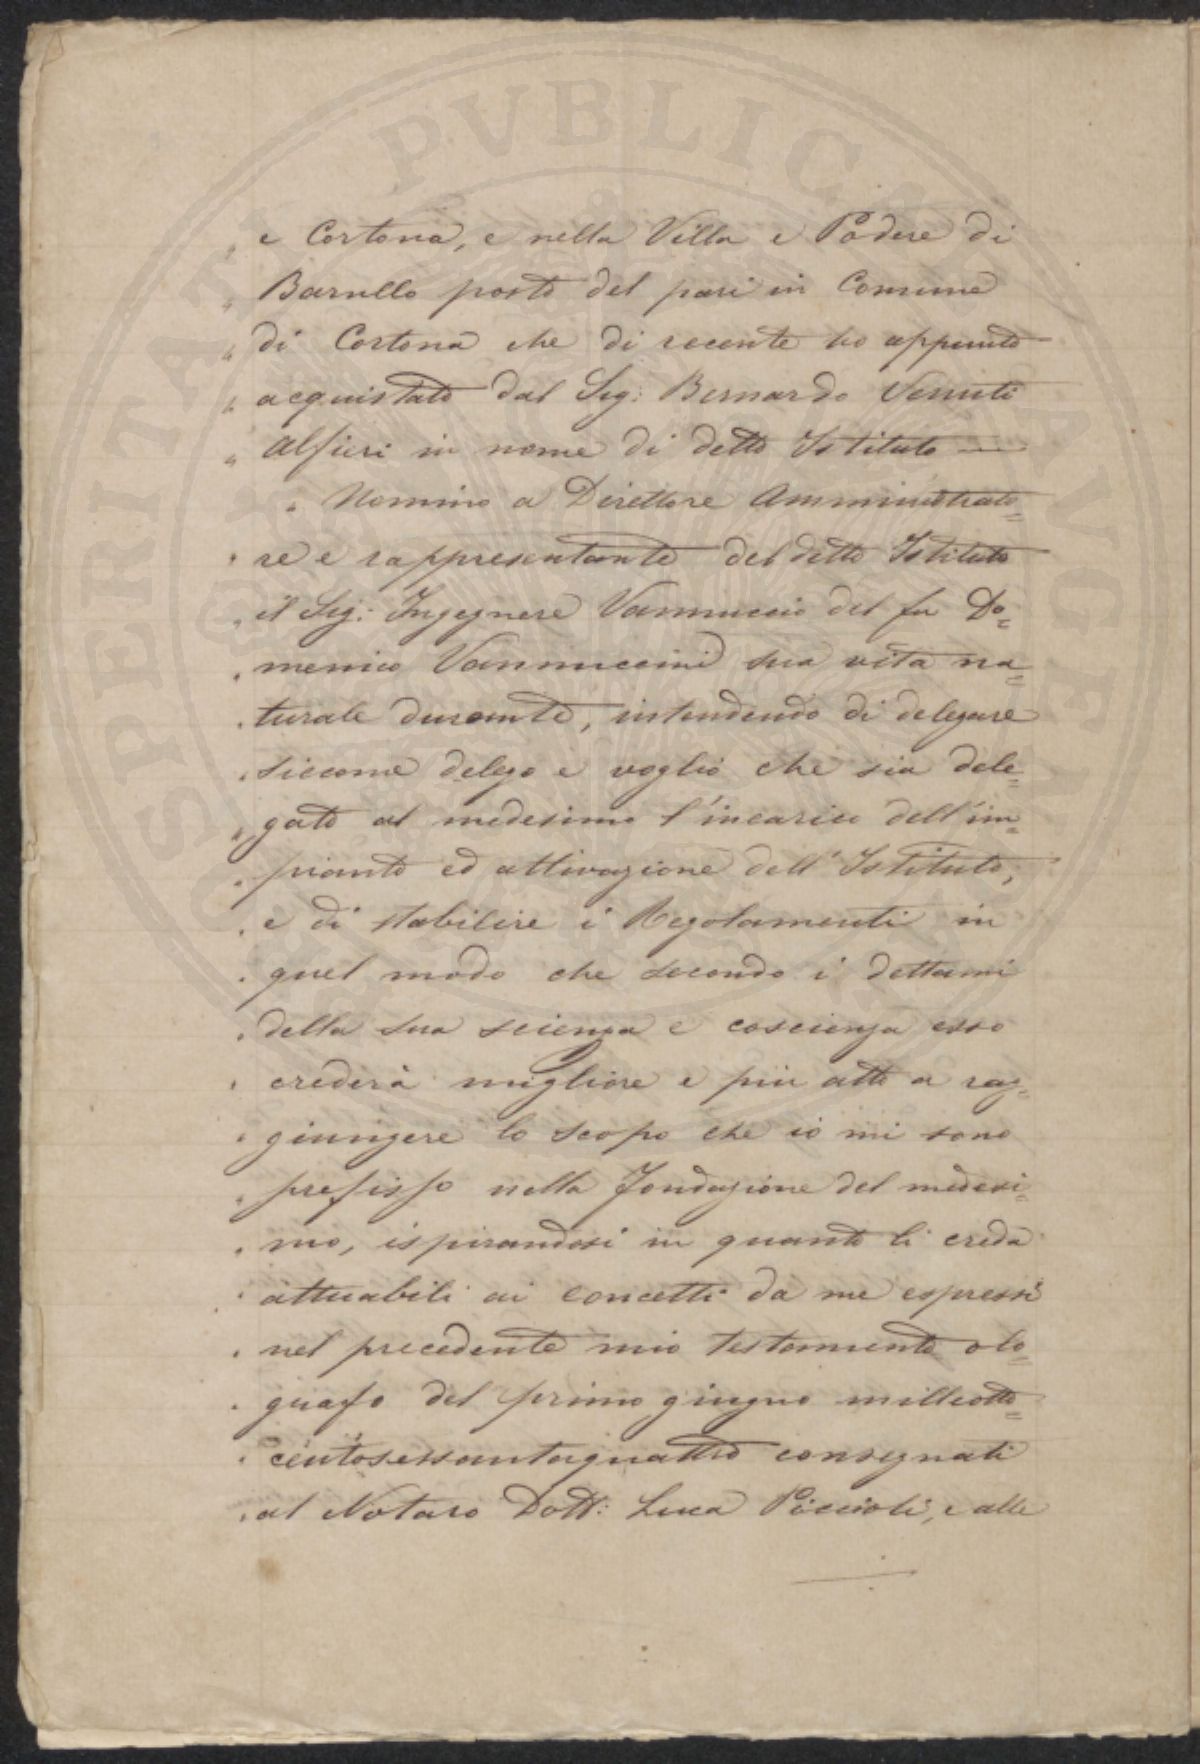 " e Cortona, e nella Villa e Podere di
" Barullo posto del pari in Comune
" di Cortona che di recente ho appunto
" acquistato dal Sig: Bernardo Venuti
" Alfieri in nome di detto Istituto —
" Nomino a Direttore Amministrato=
" re e rappresentante del detto Istituto
" il Sig: Ingegnere Vannuccio del fu Do=
" menico Vannuccini sua vita na=
" turale durante, intendendo di delegare
" siccome delego e voglio che sia dele=
" gato al medesimo l'incarico dell'im=
" pianto ed attivazione dell'Istituto,
" e di stabilire i Regolamenti in
" quel modo che secondo i dettami
" della sua scienza e coscienza esso
" crederà migliore e più atto a rag=
" giungere lo scopo che io mi sono
" prefisso nella Fondazione del medesi=
" mo, ispirandosi in quanto li creda
" attuabili ai concetti da me espressi
" nel precedente mio testamento olo=
" grafo del primo giugno milleotto=
" centosessantaquattro consegnati
" al Notaro Dott: Luca Piccioli, e alle
SPERITATI PVBLICAE AVGE